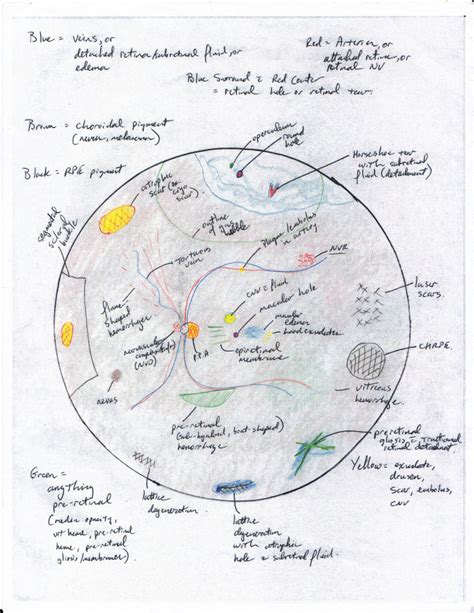 Blue = veins, or
detached retina/subretinal fluid, or
edema
Red = Arteries, or
attached retina, or
retinal NV
Blue Surround + Red Center
= retinal hole or retinal tear.
Brown = choroidal pigment
(nevus, melanoma)
Black = RPE pigment
operculum
round
hole
Horseshoe
tear with
subretinal
fluid (detachment)
atrophic
scar (or
scar).
segmental
scleral
buckle
outline
of
bubble
tortuous
vein
plaque/embolus
in artery
NVE
flame
shaped
hemorrhage
CNV + fluid
macular hole
macular
edema
hard exudates
laser
scars.
neovascular
(NVD)
P.P.A
epiretinal
membrane
CHRPE.
nevus
vitreous
hemorrhage.
pre-retinal
(sub-hyaloid, boat-shaped)
hemorrhage
preretinal
gliosis + tractional
retinal detachment
Green =
anything
pre-retinal
(media opacity,
vit heme, pre-retinal
heme, pre-retinal
gliosis/membranes).
lattice
degeneration
lattice
degeneration
with atrophic
hole + subretinal fluid.
Yellow = exudate,
drusen,
scar, embolus,
CNV